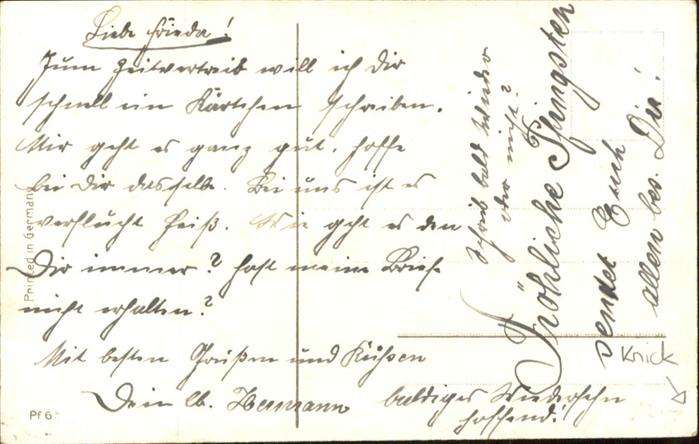 Liebe Frieda!
Zum Zeitvertreib will ich Dir
schnell ein Kärtchen schreiben.
Mir geht es ganz gut, hoffe
bei Dir dasselbe. Bei uns ist es
verflucht heiß. Wie geht es den
Dir immer? hast meine Briefe
nicht erhalten?
Mit besten Grüßen und Küssen
Dein lb. Hermann
baldiges Wiedersehn
hoffend!
Schreib bald wieder
oder nicht?
Fröhliche Pfingsten
sendet Euch
allen bes. Dir!
Knick
Printed in Germany
Pf 6